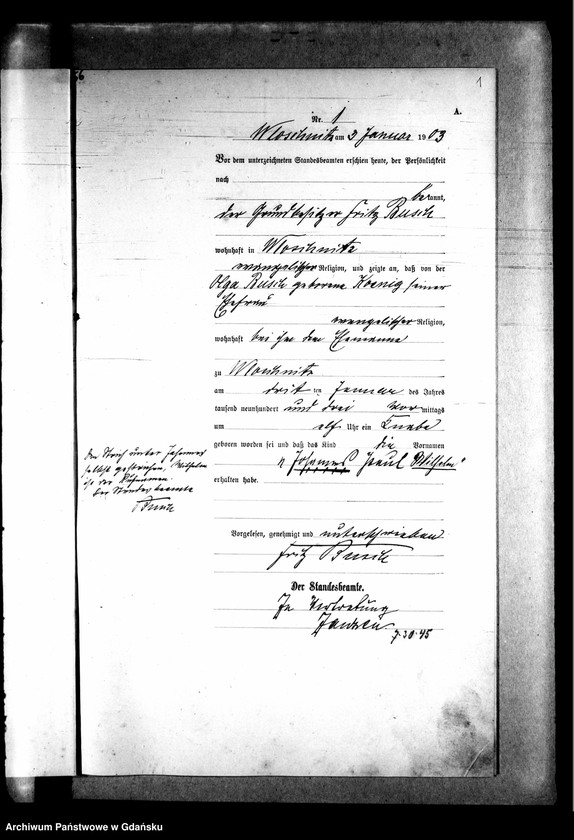 1
A.
Nr. 1
Wloschnitz am 3 Januar 1903
Vor dem unterzeichneten Standesbeamten erschien heute, der Persönlichkeit
nach
bekannt,
der Grundbesitzer Fritz Busch
wohnhaft in Wloschnitz
evangelischer Religion, und zeigte an, daß von der
Olga Busch geborene Koenig seiner
Ehefrau
evangelischer Religion,
wohnhaft bei ihm dem Ehemanne
zu Wloschnitz
am drit ten Januar des Jahres
tausend neunhundert und drei Vor mittags
um elf Uhr ein Knabe
geboren worden sei und daß das Kind die Vornamen
"Johannes Paul Wilhelm"
erhalten habe.
Den Strich unter Johannes
selbst gestrichen, Wilhelm
ist der Rufnamen
Der Standesbeamte
Vorgelesen, genehmigt und unterschrieben
Fritz Busch
Der Standesbeamte.
In Vertretung
Archiwum Państwowe w Gdańsku